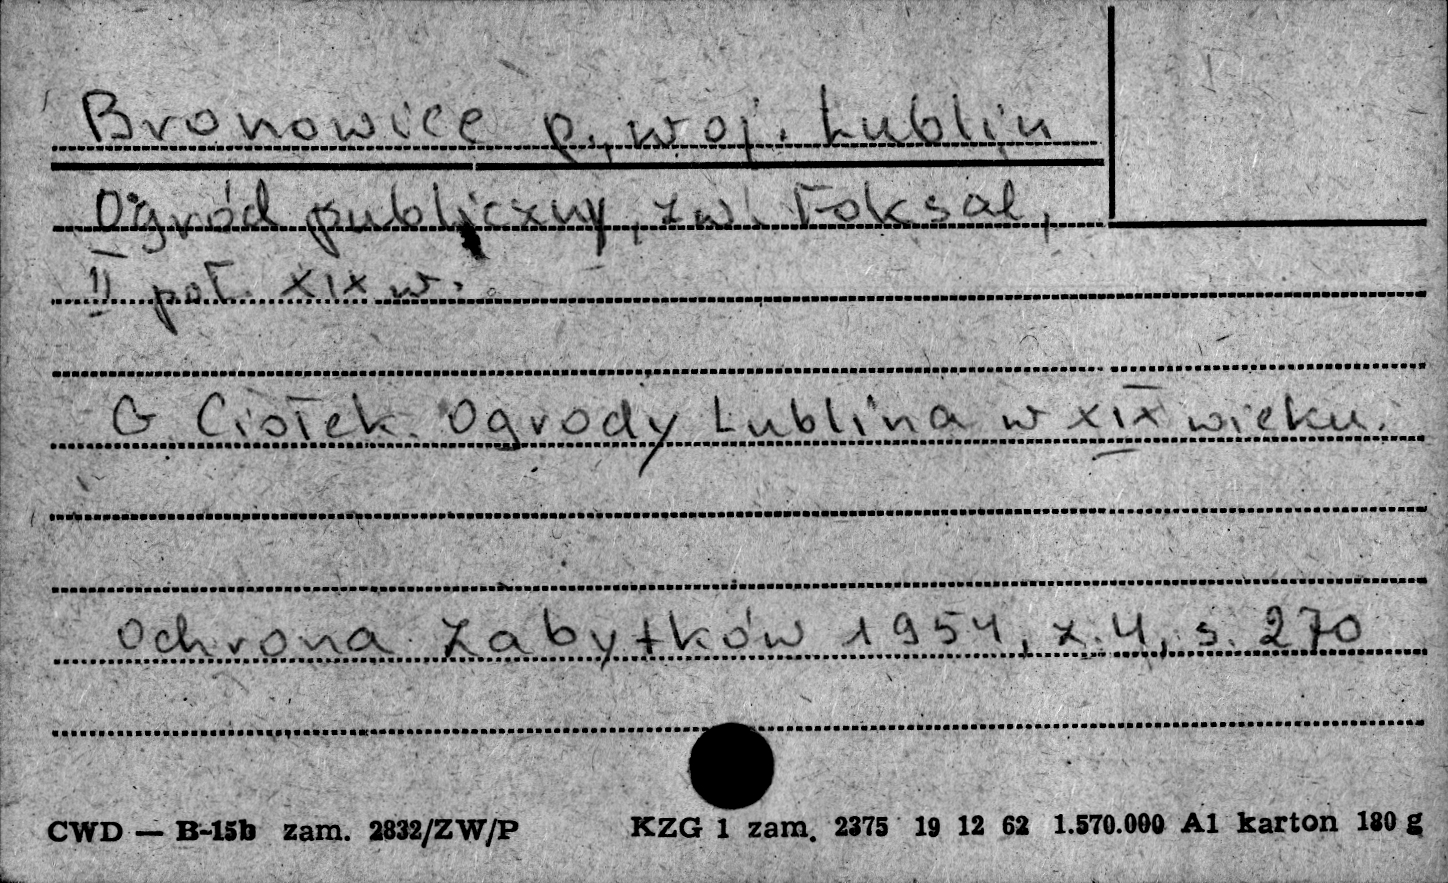 Bronowice p., woj. Lublin
Ogród publiczny, zw. Foksal,
II poł. XIX w.
G. Ciołek. Ogrody Lublina w XIX wieku.
Ochrona Zabytków 1954, z. 4, s. 270
CWD — B-15b zam. 2832/ZW/P KZG 1 zam. 2375 19 12 62 1.570.000 A1 karton 180 g